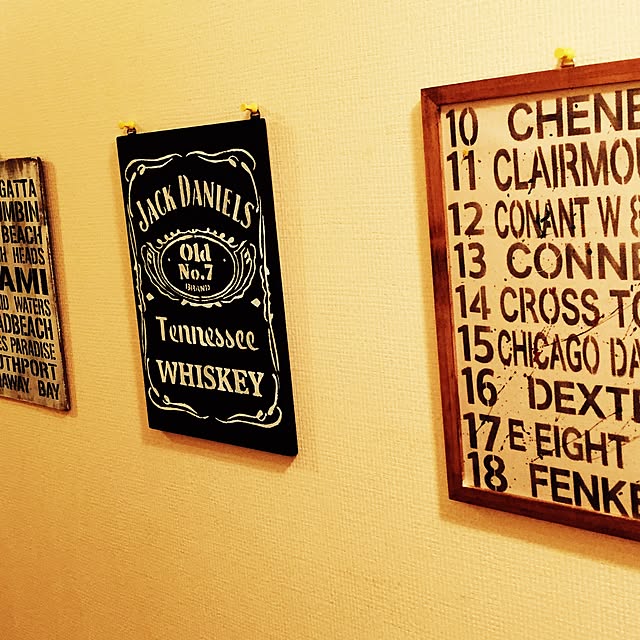 GATTA
UMBIN
BEACH
H HEADS
AMI
ID WATERS
ADBEACH
ES PARADISE
UTHPORT
AWAY BAY
JACK DANIEL'S
Old
No.7
BRAND
Tennessee
WHISKEY
10 CHENE
11 CLAIRMOU
12 CONANT W 8
13 CONNE
14 CROSS TO
15 CHICAGO DA
16 DEXTE
17 E EIGHT
18 FENKE